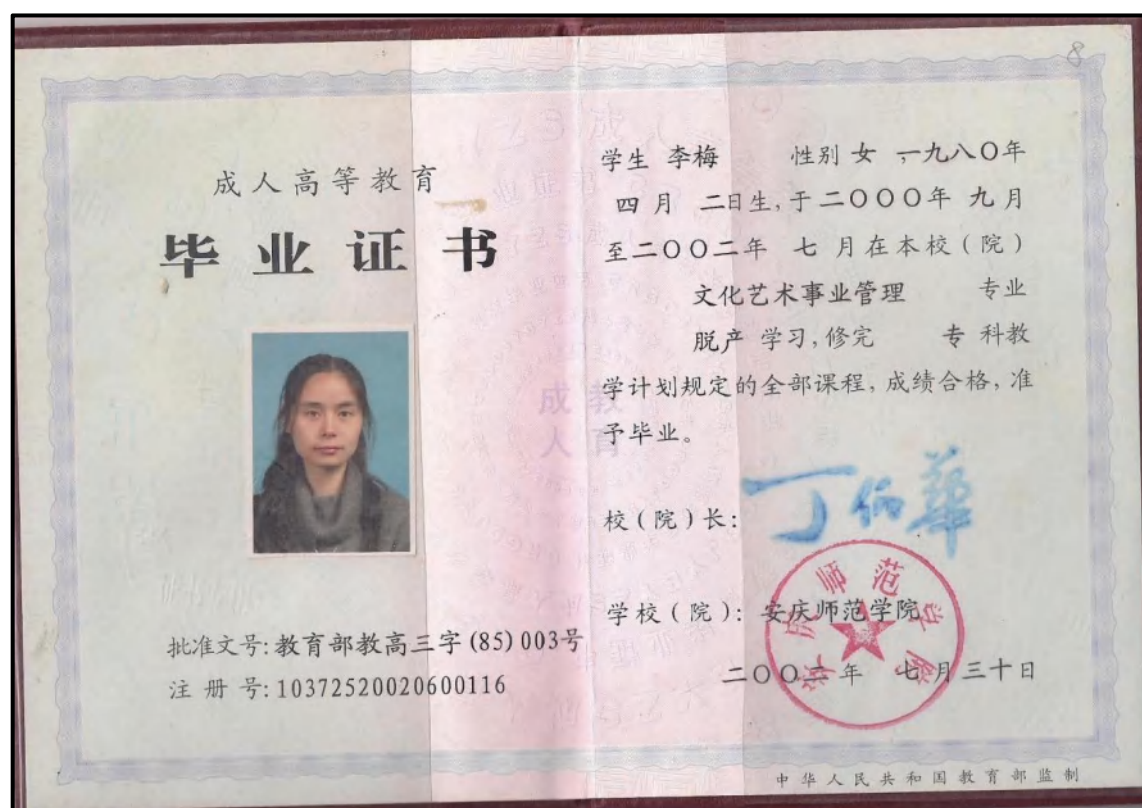 8
成人高等教育
毕业证书
成教
人育
批准文号:教育部教高三字(85)003号
注册号:10372520020600116
学生 李梅 性别 女 ,一九八〇年
四月 二日生,于二〇〇〇年 九月
至二〇〇二年 七月在本校(院)
文化艺术事业管理 专业
脱产 学习,修完 专 科教
学计划规定的全部课程,成绩合格,准
予毕业。
校(院)长: 丁伯华
学校(院): 安庆师范学院
安庆师范学院
二〇〇二年 七月三十日
中华人民共和国教育部监制